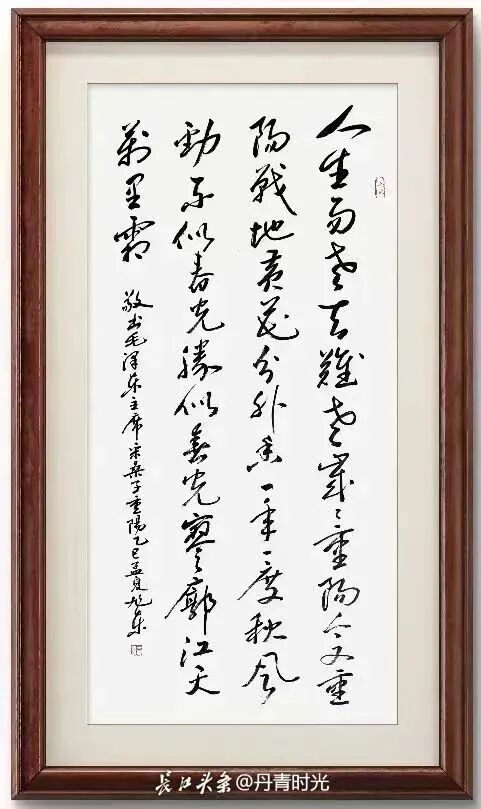 人生易老天難老歲〻重陽今又重
陽戰地黃花分外香一年一度秋風
勁不似春光勝似春光寥廓江天
萬里霜
敬书毛澤东主席采桑子重陽乙巳孟夏旭东
长江头条 @丹青时光